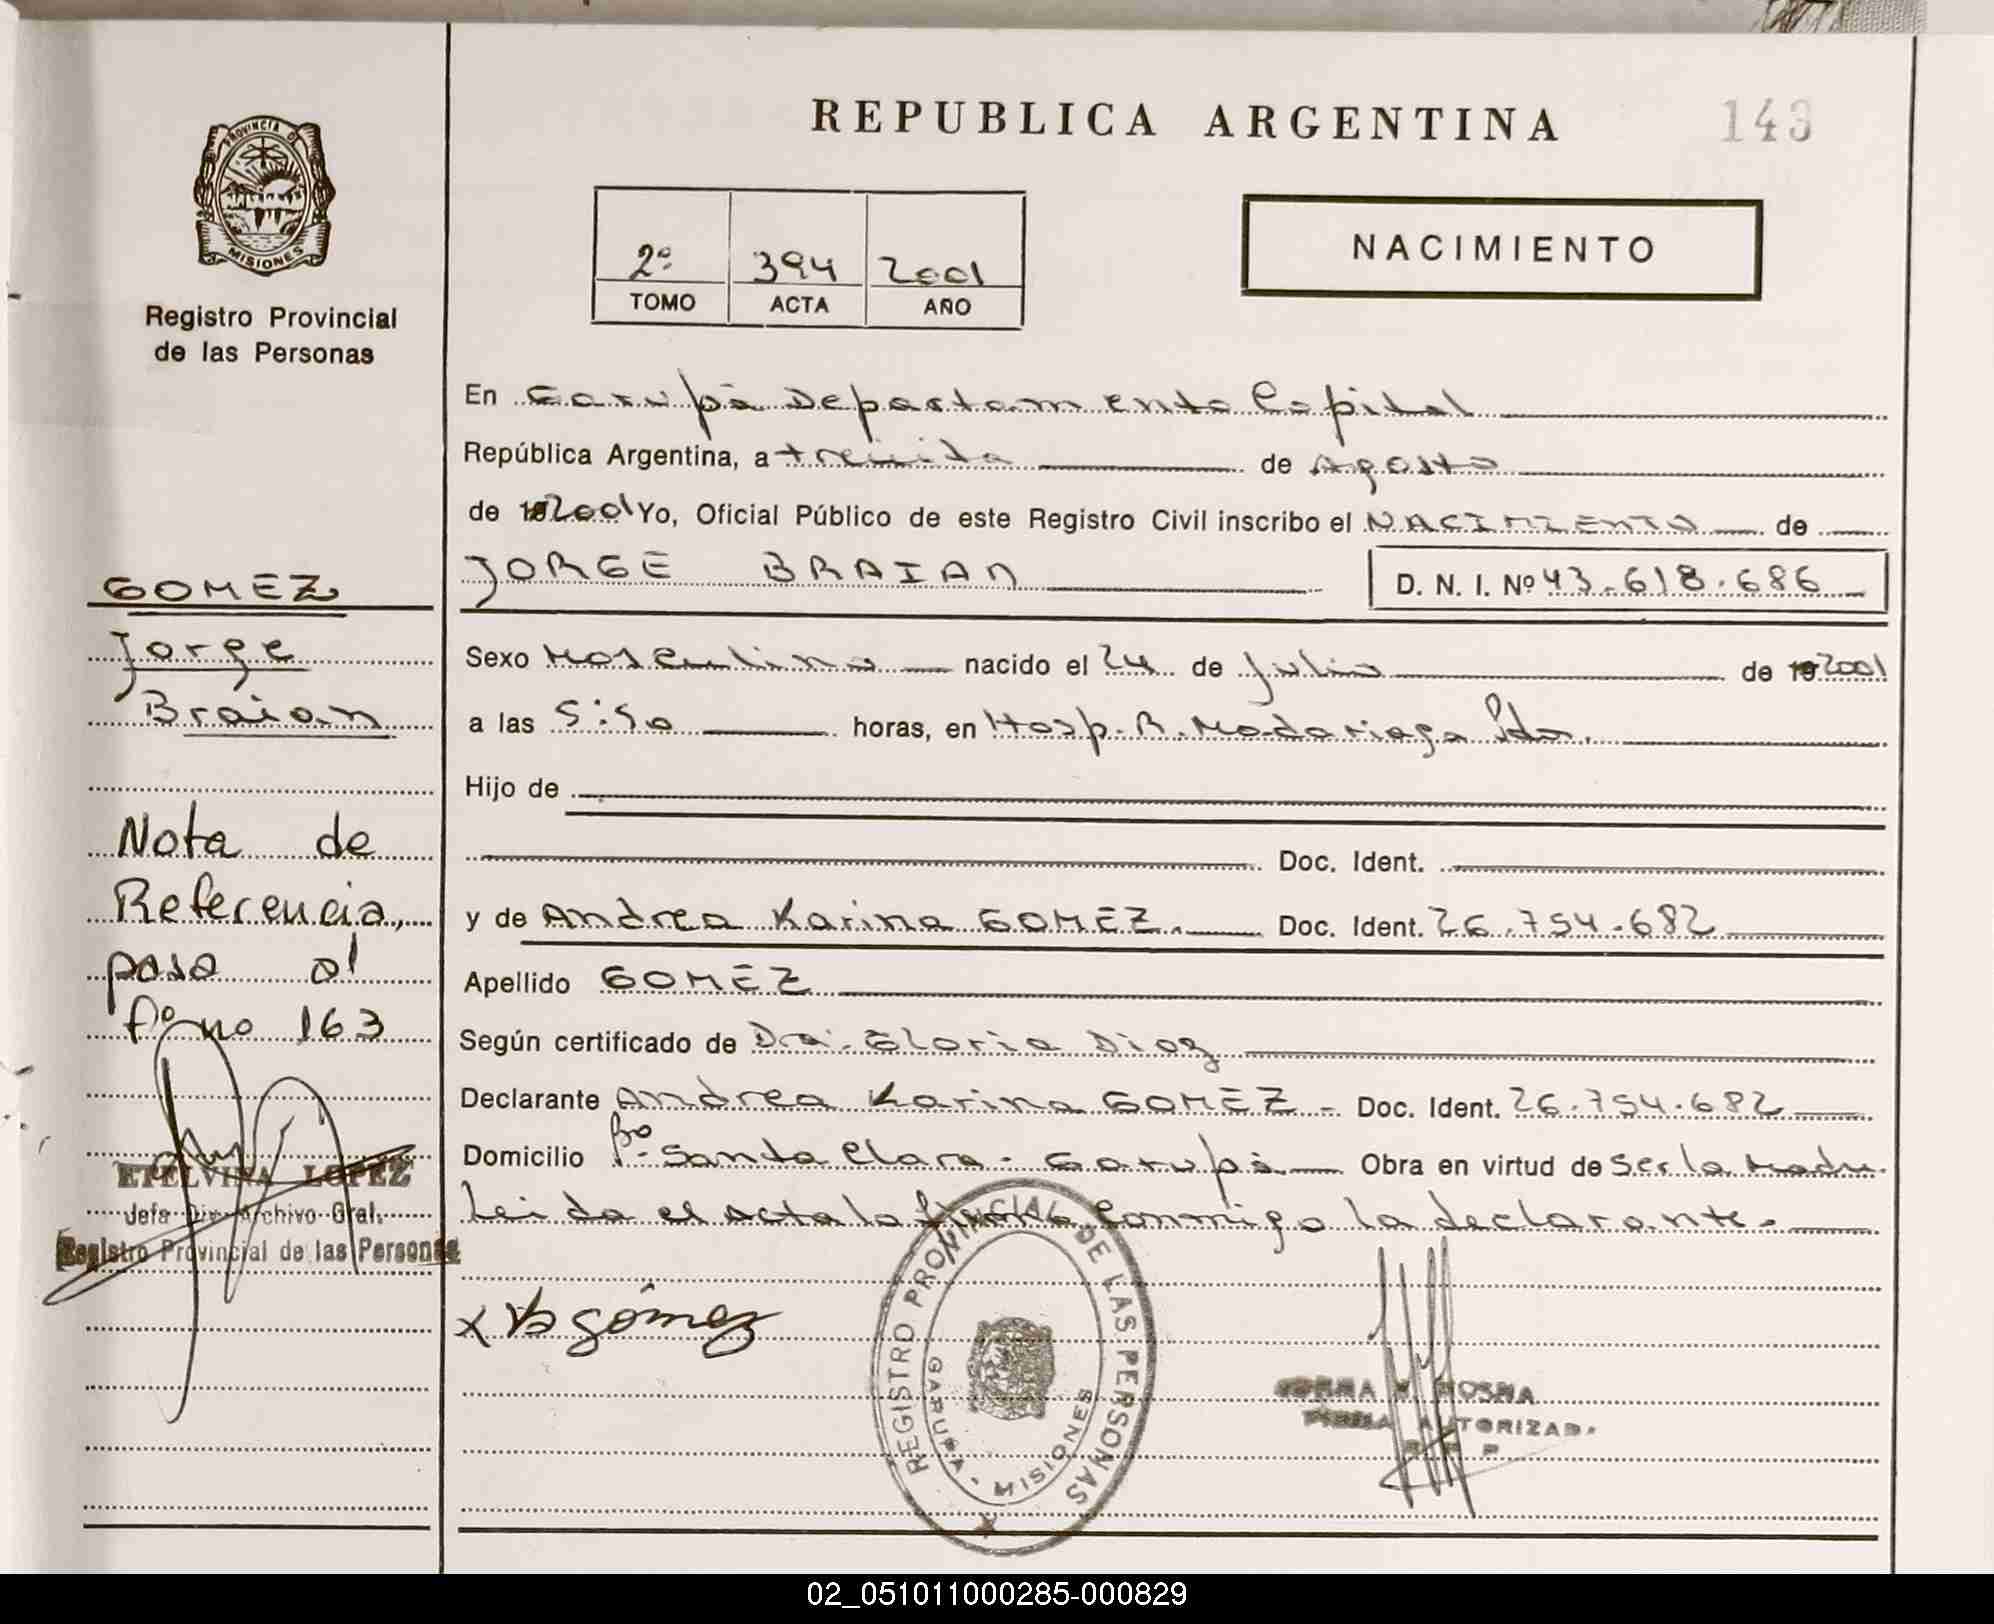 REPUBLICA ARGENTINA
143
PROVINCIA DE
MISIONES
Registro Provincial
de las Personas
2º 394 2001
TOMO ACTA AÑO
NACIMIENTO
En Garupá Departamento Capital
República Argentina, a treinta de Agosto
de 2001 Yo, Oficial Público de este Registro Civil inscribo el NACIMIENTO de
JORGE BRAIAN D. N. I. Nº 43.618.686
Sexo Masculino nacido el 24 de Julio de 2001
a las 5:50 horas, en Hosp. R. Madariaga Pdas.
Hijo de
Doc. Ident.
y de Andrea Karina GOMEZ.- Doc. Ident. 26.754.682
Apellido GOMEZ
Según certificado de Dra. Gloria Diaz
Declarante Andrea Karina GOMEZ - Doc. Ident. 26.754.682
Domicilio Bº Santa Clara - Garupá Obra en virtud de Ser la Madre.
Leida el acta la firma conmigo la declarante.
x gómez
REGISTRO PROVINCIAL DE LAS PERSONAS
GARUPA - MISIONES
NORMA
FIRMA AUTORIZAD.
R P P
GOMEZ
Jorge
Braian
Nota de
Referencia,
pasa al
fº no 163
ETELVINA LOPEZ
Jefa Div. Archivo Gral.
Registro Provincial de las Personas
02_051011000285-000829